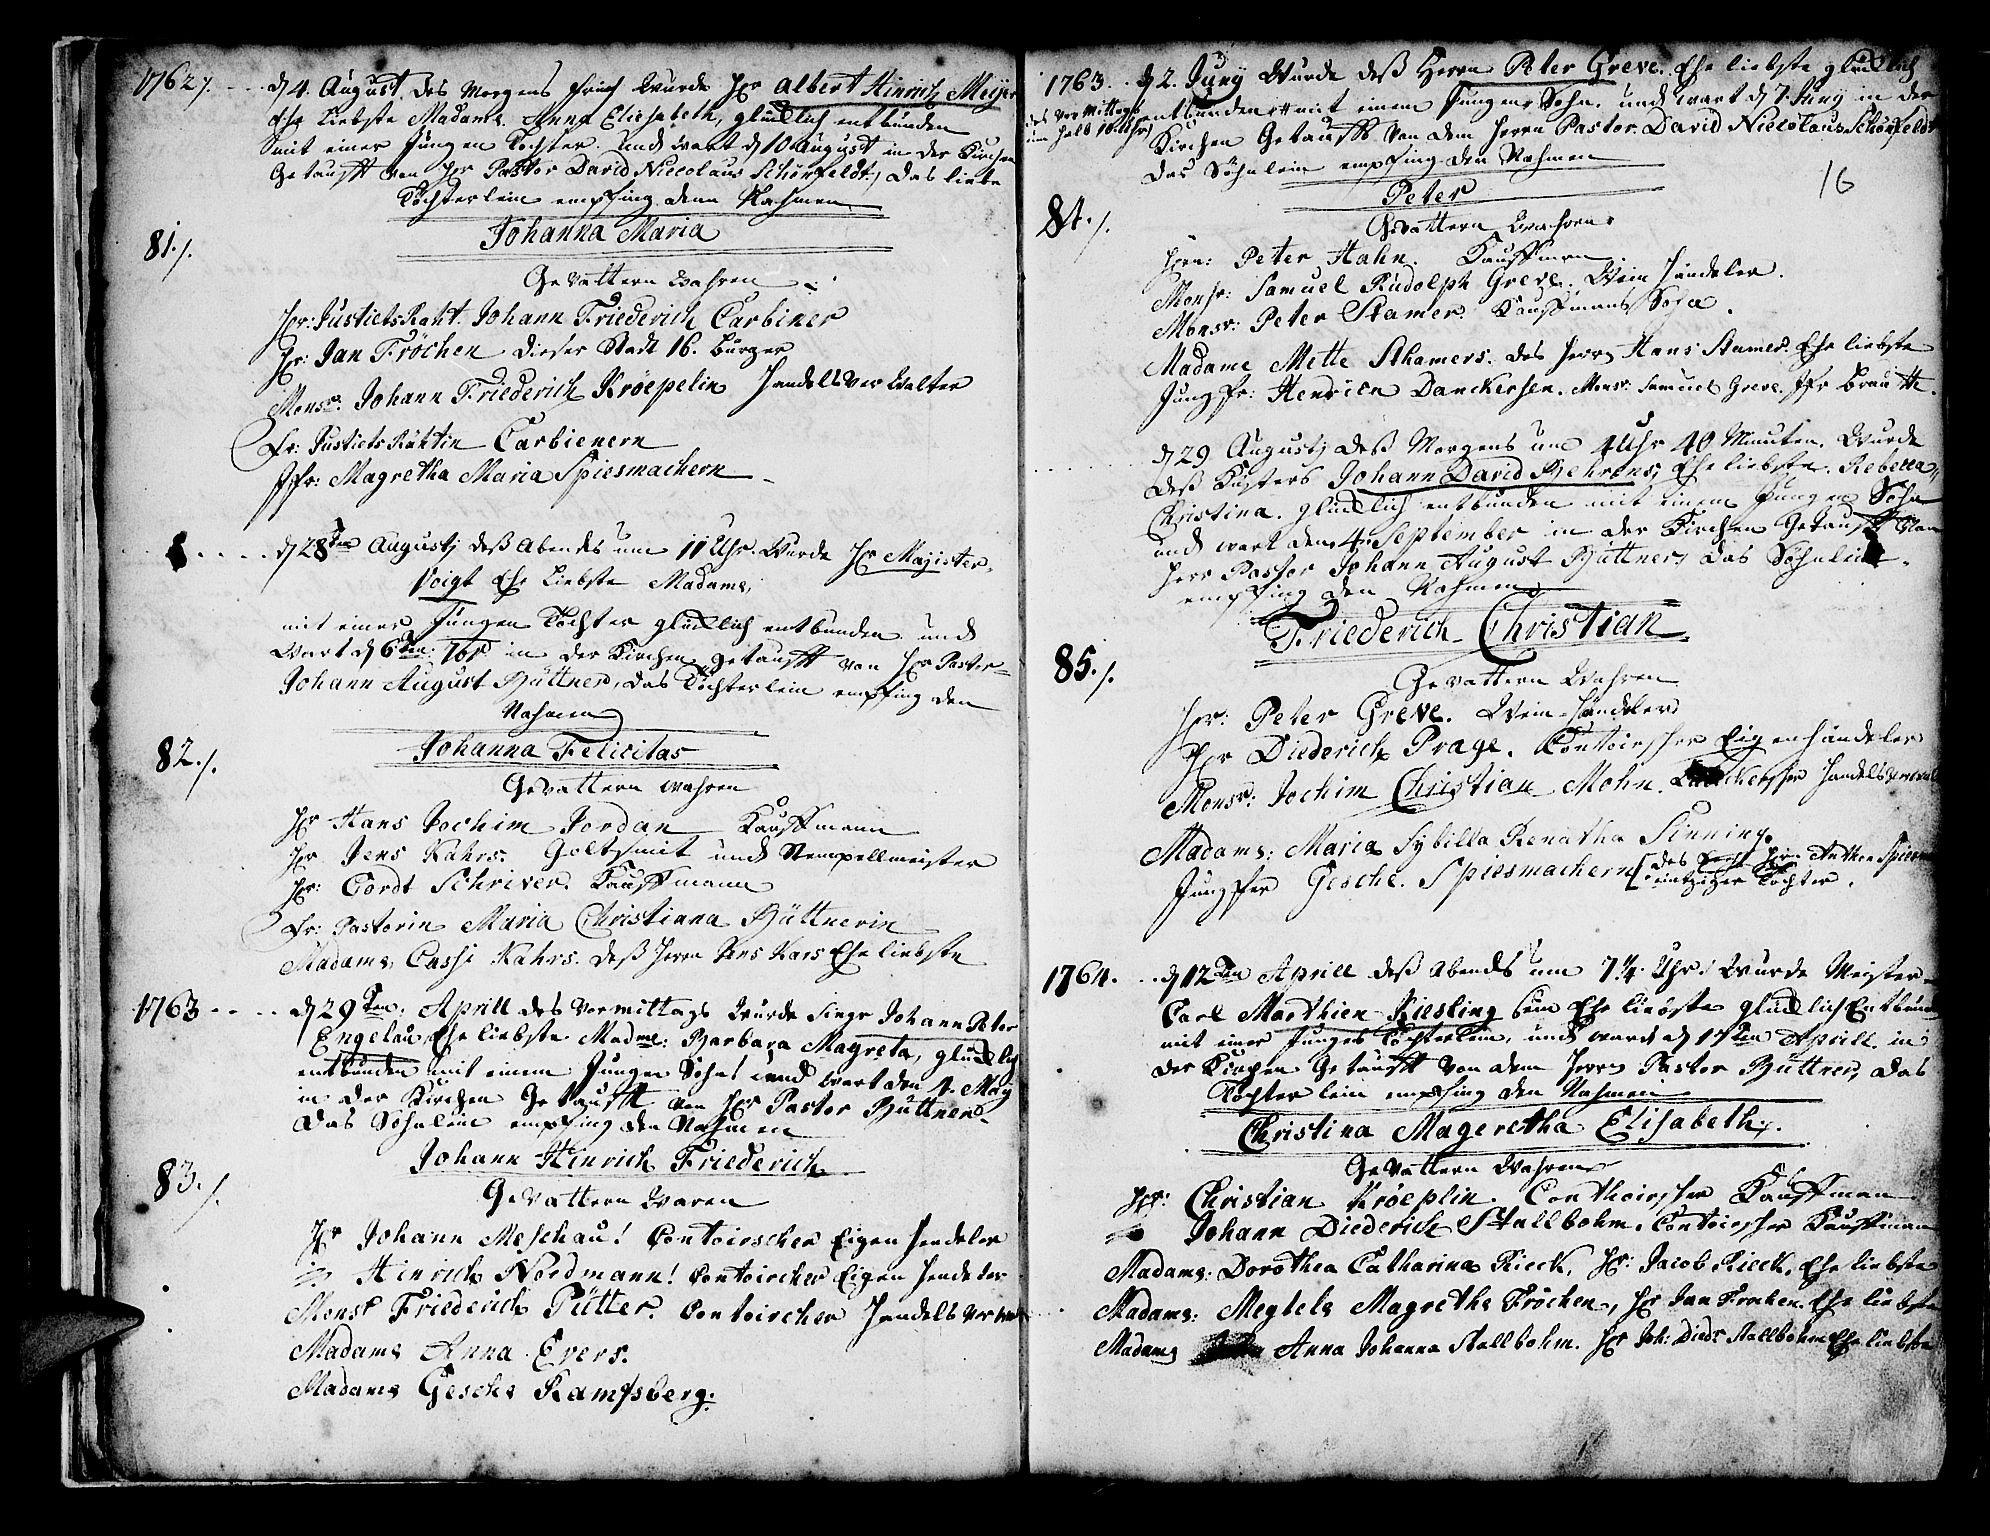 1762/. d 4. August des Morgens früh wurde Hr Albert Hinrich Meijer
Ehe Liebste Madame. Anna Eliesabeth, glücklich entbunden
mit einer Jungen Tochter und wart d 10 August in der Kirchen
Getaufft von Hr Pastor David Niccolaus Schönfeldt, das liebe
Töchterlein empfing denn Nahmen
81./.
Johanna Maria
Gevattern wahren
Hr: Justiets Raht. Johann Friederich Carbiner
Hr: Jan Fröchen dieser Stadt 16. bürger
Monsr: Johann Friederich Kröepelin Handells Verwalter
Fr: Justiets Rähtin Carbienern
Jfr: Magretha Maria Spiesmachern
d 28ten Augustj deß Abends um 11 Uhr. Wurde Hr Majister
Voigt Ehe Liebste Madame,
mit einer Jungen Tochter glücklich entbunden und
wart d 6ten: 7br in der Kirchen getaufft von Hr Pastor
Johann August Büttner, das Töchterlein empfing den
Nahmen
82./.
Johanna Felicitas
Gevattern wahren
Hr Hans Jochim Jordan Kauffmann
Hr Jens Kahrs. Goltsmit und Stempellmeister
Hr: Cordt Schriver. Kauffmann
Fr: Pastorin Maria Christianna Büttnerin
Madame Cassi Kahrs. deß Herrn Jens Kars Ehe liebste
1763 d 29ten: Aprill des Vormittags Wurde Singr Johann Peter
Engelau Ehe liebste Madme: Barbara Magreta, glücklich
entbunden mit einem Jungen Sohn und wart den 4. Maij
in der Kirchen Getaufft von Hr Pastor Büttner
das Söhnlein empfing den Nahmen
83./.
Johann Hinrich Friederich
Gevattern waren
Hr Johann Meschau! Contoirscher Eigen Hendeler
Hinrich Nordmann! Contoircher Eigen Hendeler
Monsr Friederich Pütter. Contoircher Handels Verwal
Madame Anna Evers.
Madame Gesche Kampsberg.
1763. d 2. Juny Wurde deß Herrn Peter Greve. Ehe liebste glücklich
des Vormittags um halb 10 Uhr
entbunden mit einem Jungen Sohn. und wart d 7. Juny in der
Kirchen Getaufft von dem Herrn Pastor. David Niccolaus Schönfeldt
Das Söhnlein empfing den Nahmen
16
Peter
84./.
Gevattern wahren
Hrn: Peter Hahn. Kauffman
Monsr: Samuel Rudolph Greve. Wein Händeler.
Monsr: Peter Stamer. Kauffmans Sohn.
Madame Mette Sthamers. des Herrn Hans Stamer. Ehe liebste
Jungfr: Henrien Danckersen. Monsr: Samuel Greve. Jfr Brautt
d 29 Augustj deß Morgens um 4 Uhr 40 Minuten. Wurde
deß Küsters Johann David Behrens, Ehe liebste. Rebecca
Christina. glücklich entbunden mit einem Jungen Sohn
und wart den 4. September in der Kirchen Getaufft Von
Herr Pastor Johann August Büttner, das Söhnlein
empfing den Nahmen
Friederich Christian
85./.
Gevattern Wahren
Hr: Peter Greve. Wein Händler
Hr Diederich Prage. Contoirscher Eigenhändeler
Monsr: Jochim Christian Mohn. Handelsverwal
Madame: Maria Sybilla Renatha Sinning.
Jungfer Gesche. Spiesmachern des Hr: Anthon Spiesm
eintziger Tochter.
1764. d 12ten Aprill deß Abends um 7¼ Uhr. Wurde Meister
Carl Marthien Kiesling sein Ehe liebste glücklich Entbunden
mit einer Junges Töchterlein, und ward d 17ten Aprill. in
der Kirchen Getaufft Von dem Herrn Pastor Büttner, das
Töchterlein empfing den Nahmen
Christina Mageretha Elisabeth./.
Gevattern Wahren
Hr: Christian Kröeplin. Conthoirscher Kauffman
Johann Diederich Stallbohm. Contoirscher Kauffman
Madame: Dorothea Catharina Rieck, Hr: Jacob Rieck. Ehe liebste
Madame: Megtele Magretha Fröchen, Hr Jan Frochen. Ehe liebste
Madame Anna Johanna Stallbohm. Hr Joh: Diedr Stallbohm Ehe liebste